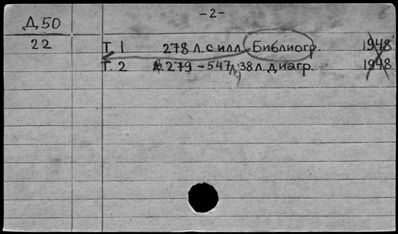 -2-
Д.50
22
Т. 1 278 л. с илл. Библиогр. 1948
Т. 2 л. 279 - 547 л., 38 л. диагр. 1948